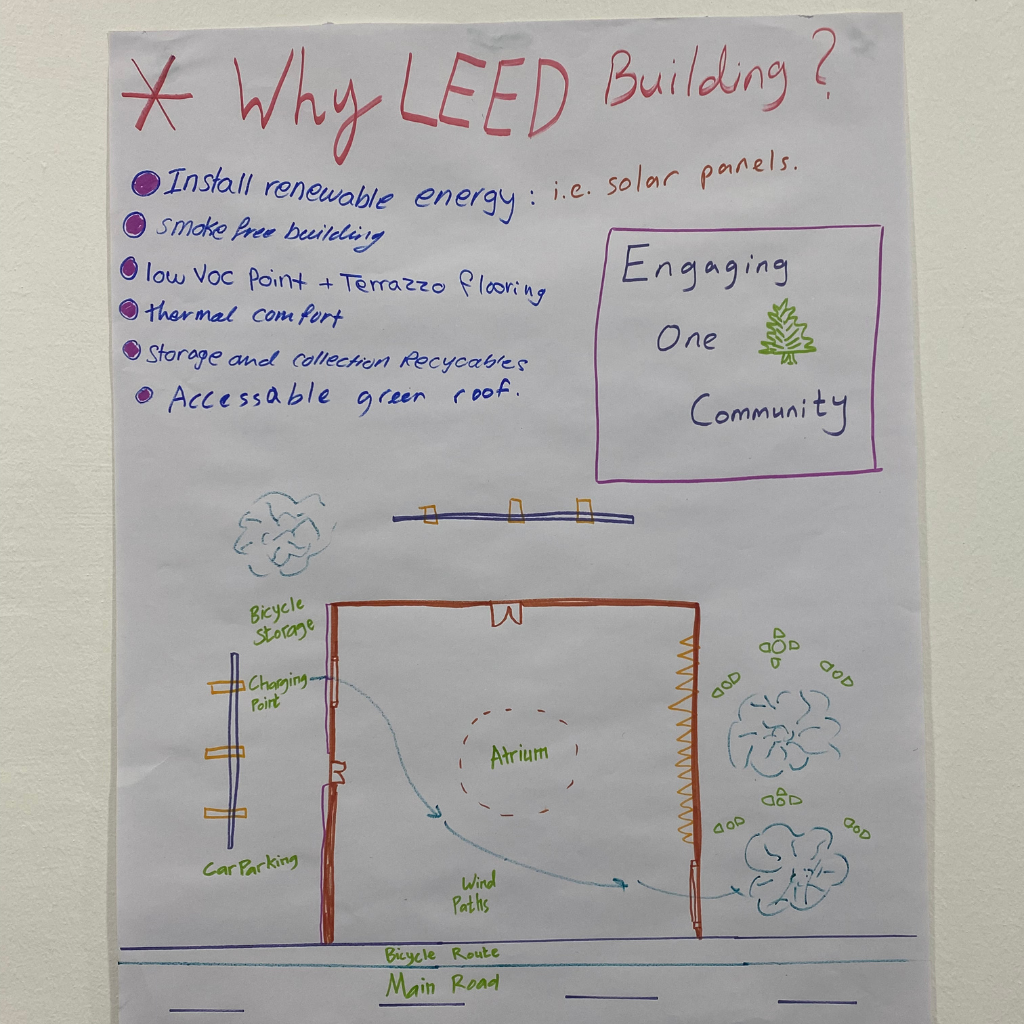 * Why LEED Building?
Install renewable energy: i.e. solar panels.
smoke free building
low Voc Point + Terrazzo flooring
thermal comfort
Storage and collection Recycables
Accessable green roof.
Engaging
One
Community
Bicycle
Storage
Charging
Point
Atrium
Car Parking
Wind
Paths
Bicycle Route
Main Road